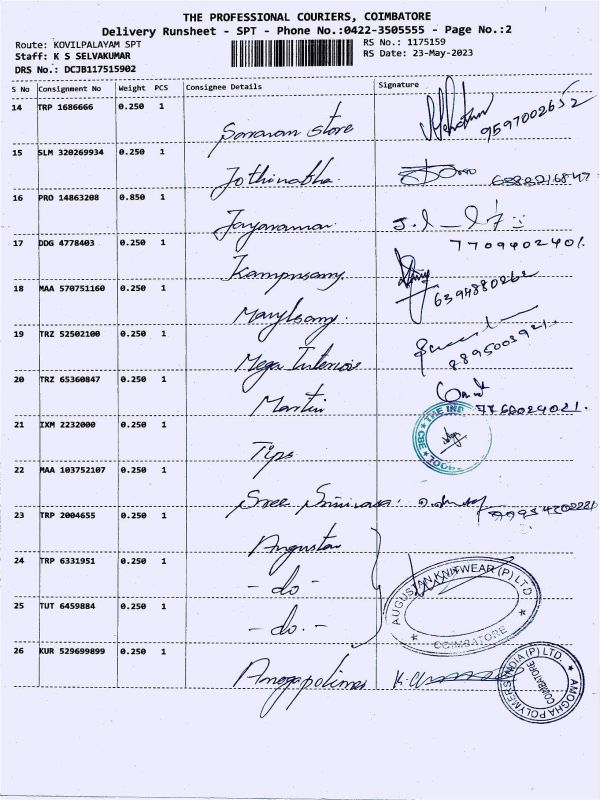 THE PROFESSIONAL COURIERS, COIMBATORE
Delivery Runsheet - SPT - Phone No.:0422-3505555 - Page No.:2
Route: KOVILPALAYAM SPT
RS No.: 1175159
Staff: K S SELVAKUMAR
RS Date: 23-May-2023
DRS No.: DCJB117515902
S No Consignment No Weight PCS Consignee Details Signature
14 TRP 1686666 0.250 1
Saravan Store 9597002652
15 SLM 320269934 0.250 1
Jothinabha.
16 PRO 14863208 0.850 1
Jayaraman.
17 DDG 4778403 0.250 1 7709402401.
Kampusamy.
18 MAA 570751160 0.250 1 6394880262
Marylsamy.
19 TRZ 52502100 0.250 1
Mega Interior 8895003921.
20 TRZ 65360847 0.250 1
Martin 7760024021.
21 IXM 2232000 0.250 1
Tips
22 MAA 103752107 0.250 1
Sree Srinivasa.
23 TRP 2004655 0.250 1
Augustan
24 TRP 6331951 0.250 1
- do -
AUGUSTAN KNITWEAR (P) LTD
COIMBATORE
25 TUT 6459884 0.250 1
- do. -
26 KUR 529699899 0.250 1
Amogapolimes
AMOGHA POLYMERS INDIA (P) LTD
COIMBATORE